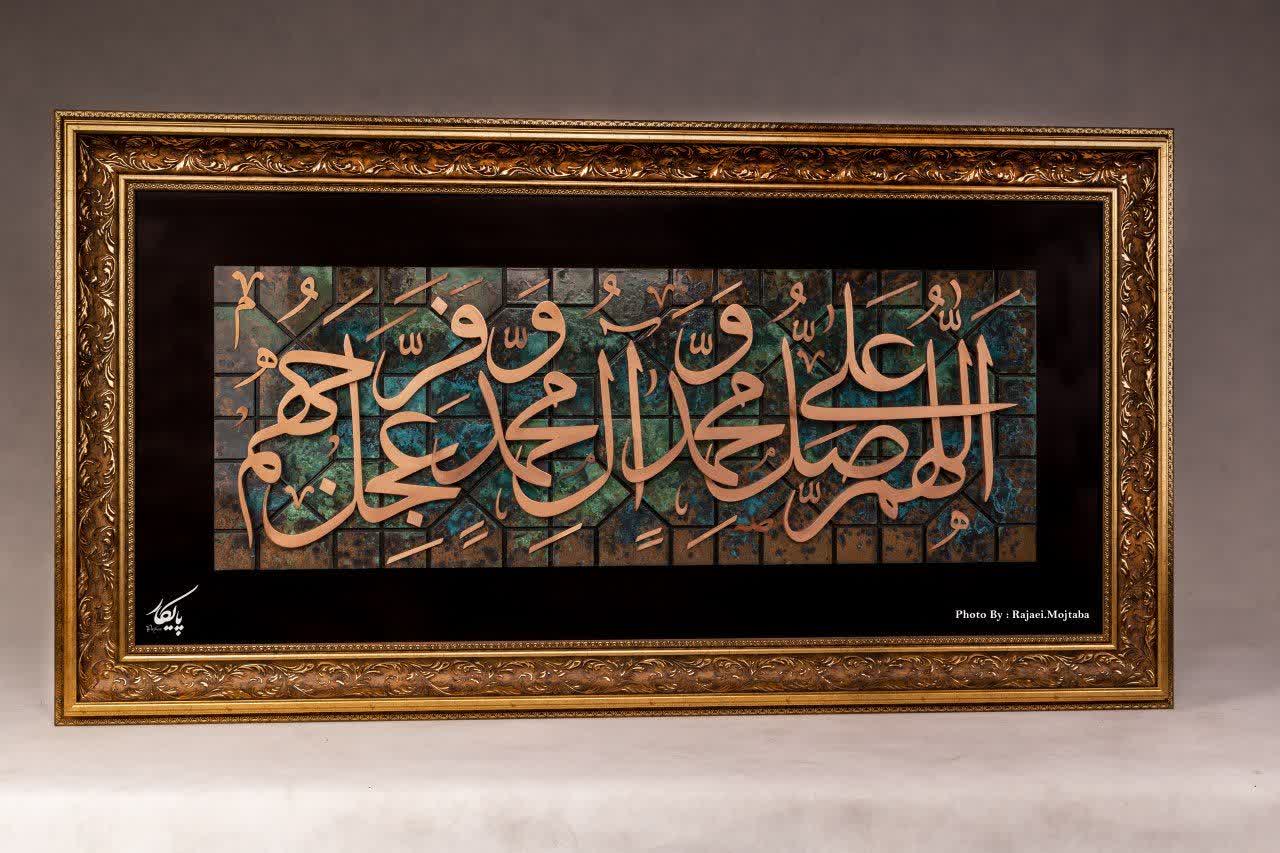 اللهم صل علی محمد و آل محمد و عجل فرجهم
پایکار
Photo By : Rajaei.Mojtaba